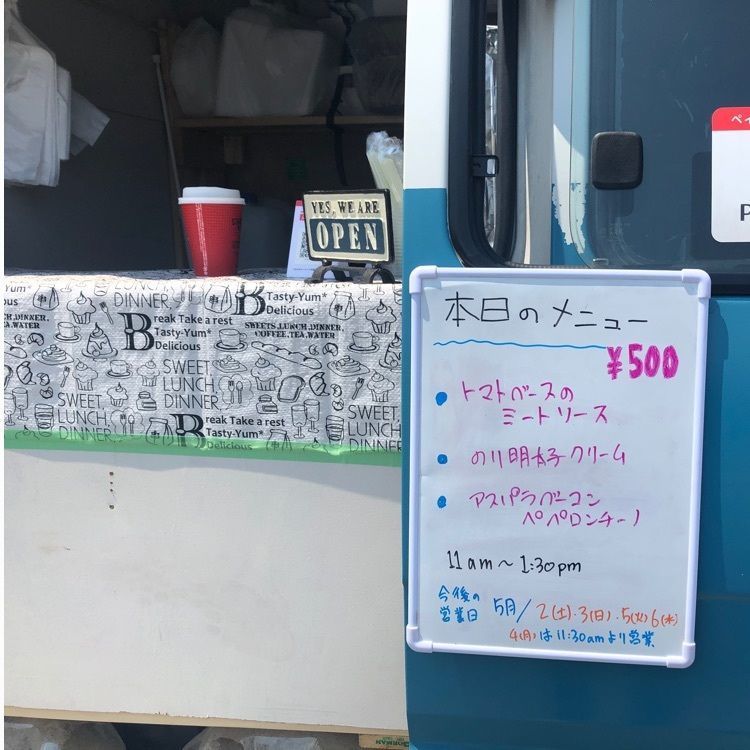 YES, WE ARE
OPEN
LUNCH
DINNER
B
Tasty-Yum*
Delicious
Break Take a rest
Tasty-Yum*
Delicious
SWEETS.LUNCH.DINNER.
COFFEE.TEA.WATER
SWEET
LUNCH
DINNER
SWEET
LUNCH
DINNER
SWEET,
LUNCH
DINNER
Break Take a rest
Tasty-Yum*
Delicious
本日のメニュー
¥500
• トマトベースの
ミートソース
• のり明太子クリーム
• アスパラベーコン
ペペロンチーノ
11am〜1:30pm
今後の
営業日 5月/2(土).3(日).5(火)6(水)
4(月)は11:30amより営業
ペイ
P